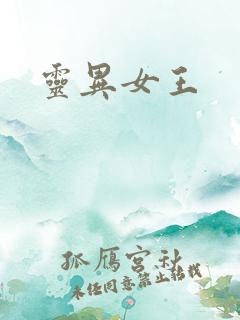 靈異女王
孤雁宮秋
未經同意禁止轉載